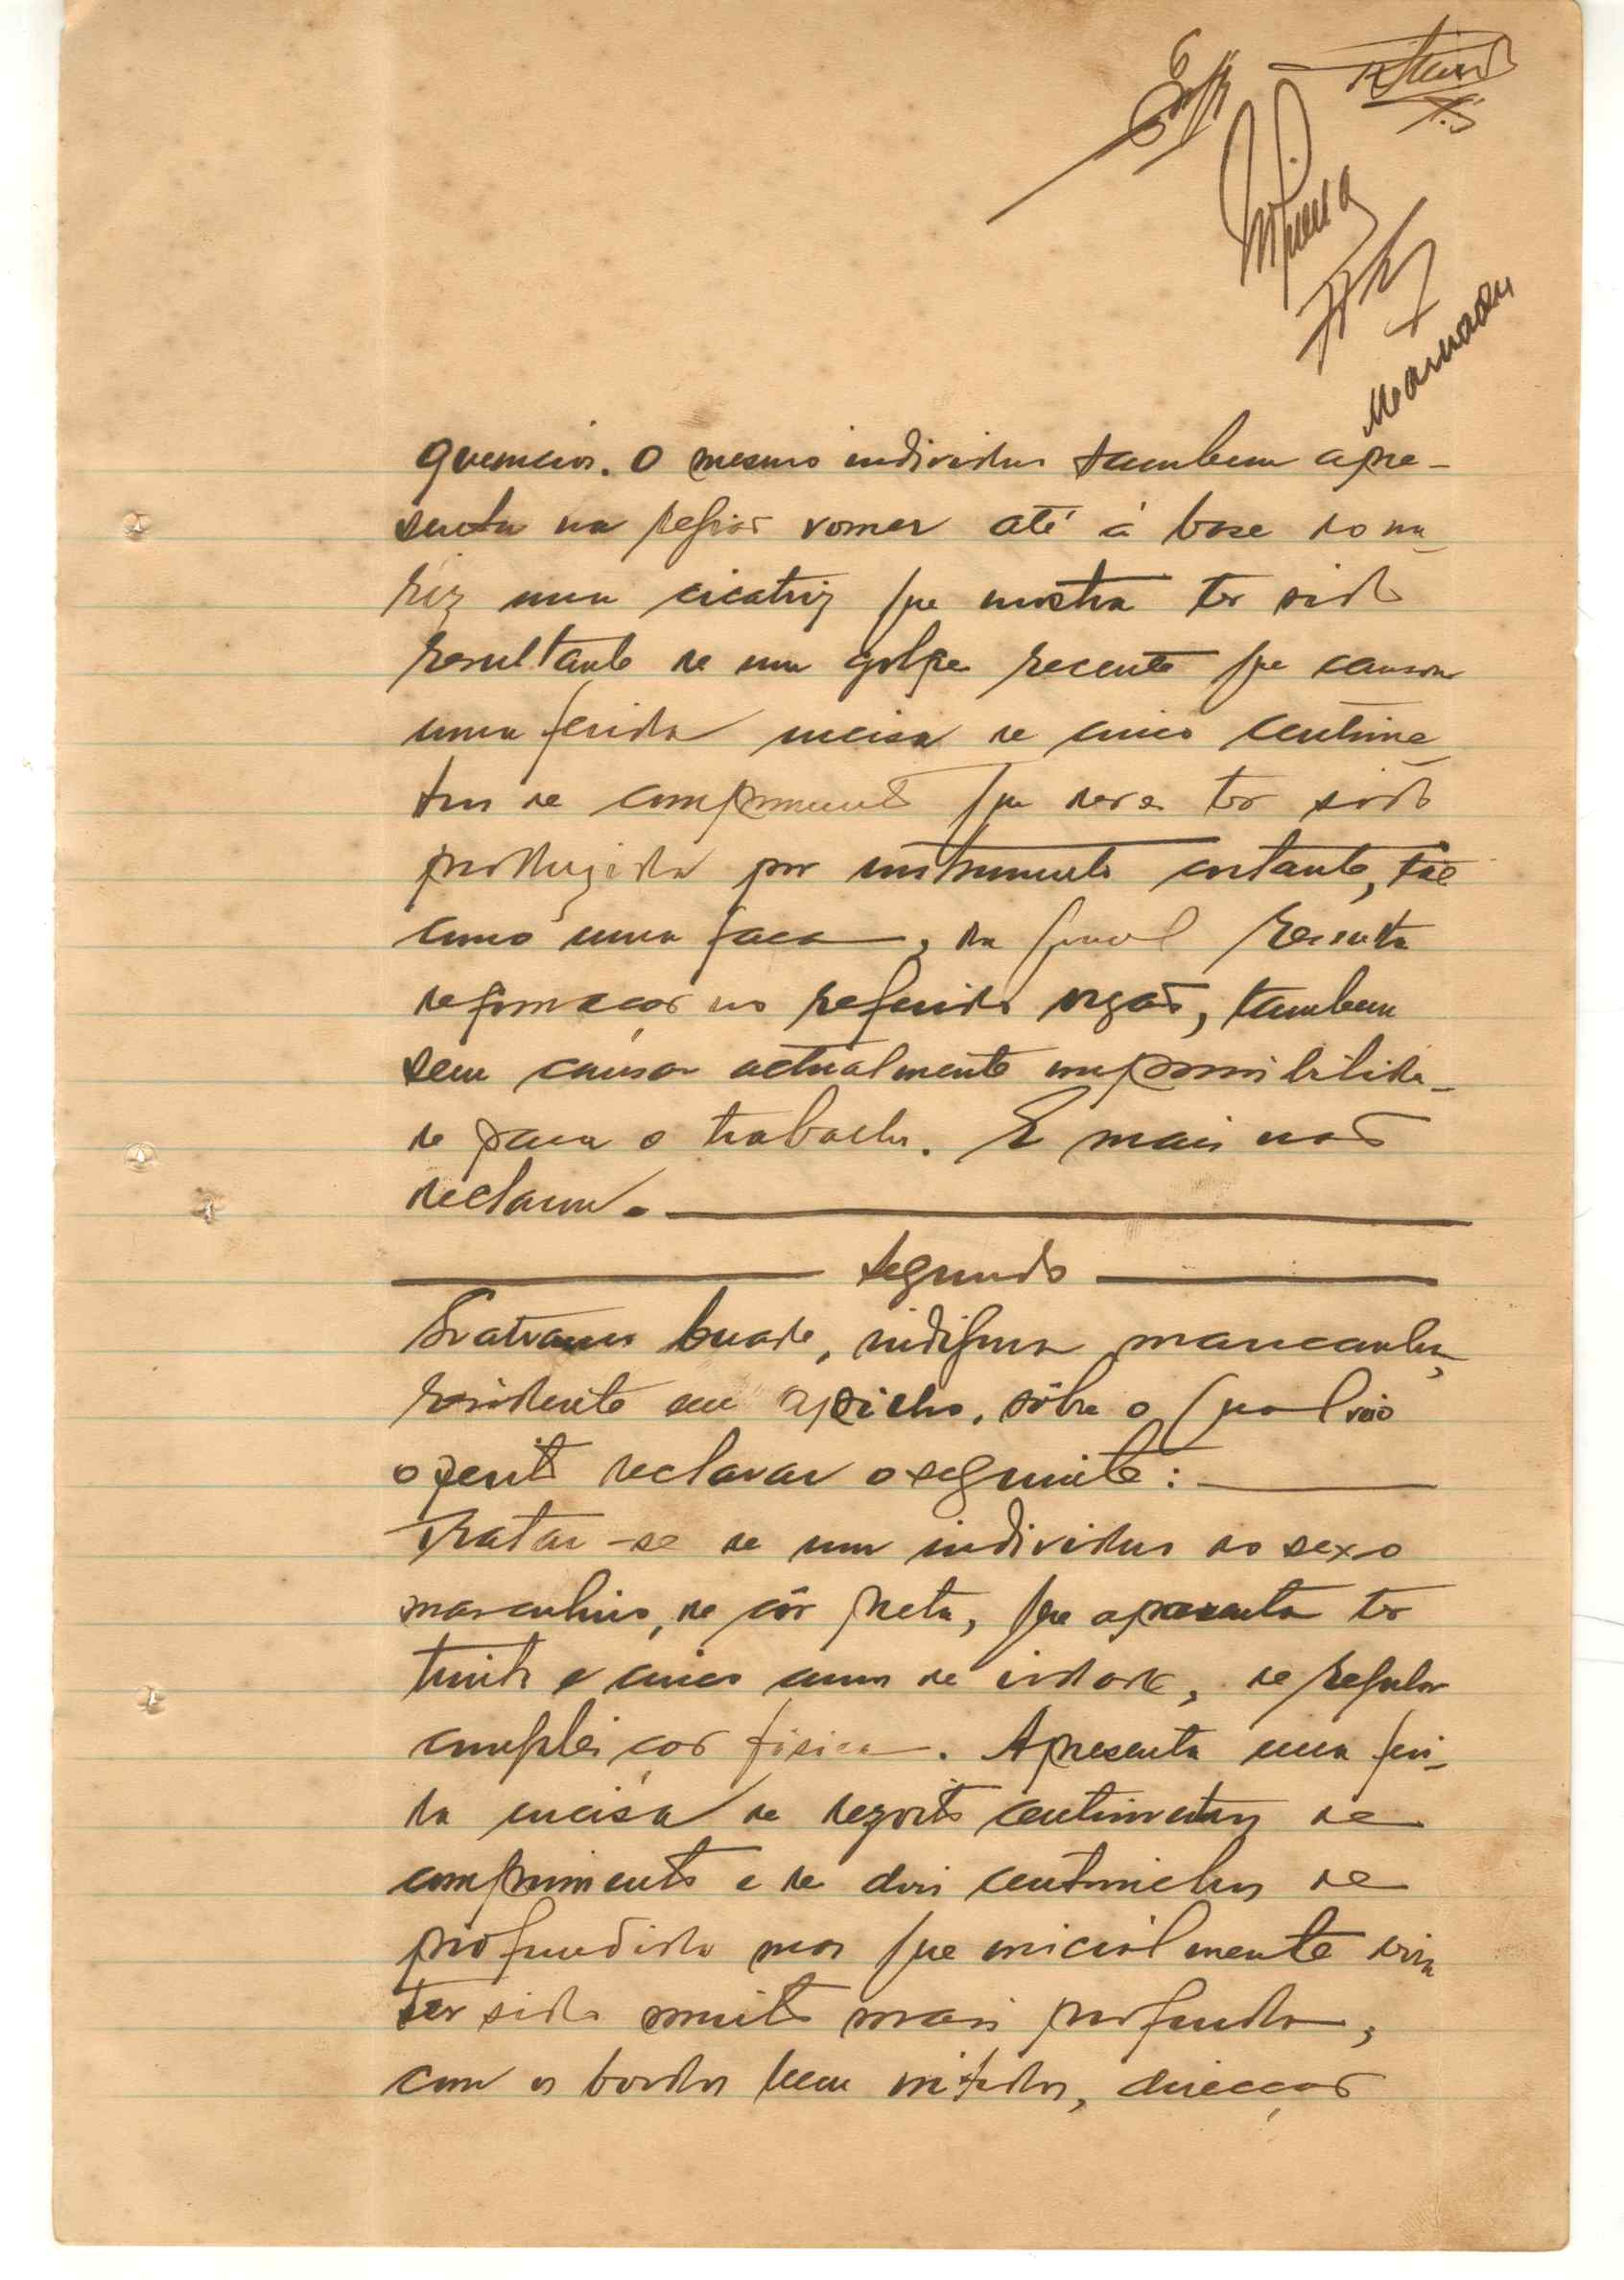 6
quencias. O mesmo individuo tambem apre-
senta na região vomer até á base do na-
riz uma cicatriz que mostra ter sido
resultante de um golpe recente que causou
uma ferida incisa de cinco centime-
tros de comprimento que deve ter sido
produzida por instrumento cortante, tal
como uma faca, da qual resulta
deformação no referido orgão, tambem
sem causar actualmente impossibilida-
de para o trabalho. E mais não
declarou.
Segundo
indigena mancanha,
residente em sôbre o qual veio
o perito declarar o seguinte:
Tratar-se de um individuo do sexo
masculino, de côr preta, que aparenta ter
trinta e cinco anos de idade, de regular
compleição fisica. Apresenta uma feri-
da incisa de dezoito centimetros de
comprimento e de dois centimetros de
profundida mas que inicialmente devia
ter sido muito mais profunda,
com os bordos bem nitidos, direcção